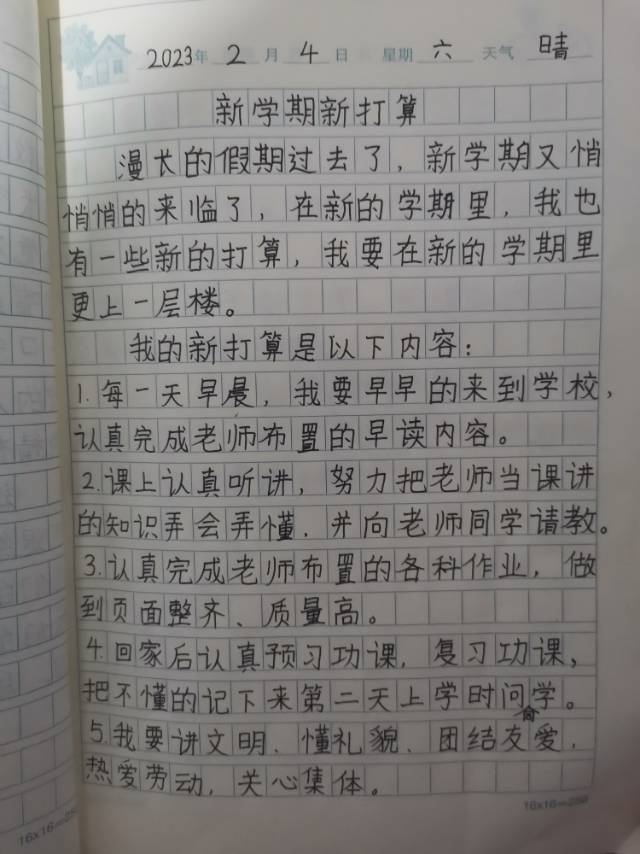 2023年 2 月 4 日 星期 六 天气 晴
新学期新打算
漫长的假期过去了，新学期又悄
悄悄的来临了，在新的学期里，我也
有一些新的打算，我要在新的学期里
更上一层楼。
我的新打算是以下内容：
1.每一天早晨，我要早早的来到学校，
认真完成老师布置的早读内容。
2.课上认真听讲，努力把老师当课讲
的知识弄会弄懂．并向老师同学请教。
3.认真完成老师布置的各科作业，做
到页面整齐、质量高。
4.回家后认真预习功课，复习功课，
把不懂的记下来第二天上学时问学。
5.我要讲文明、懂礼貌、团结友爱，
热爱劳动，关心集体。
16×16=256
16×16=256